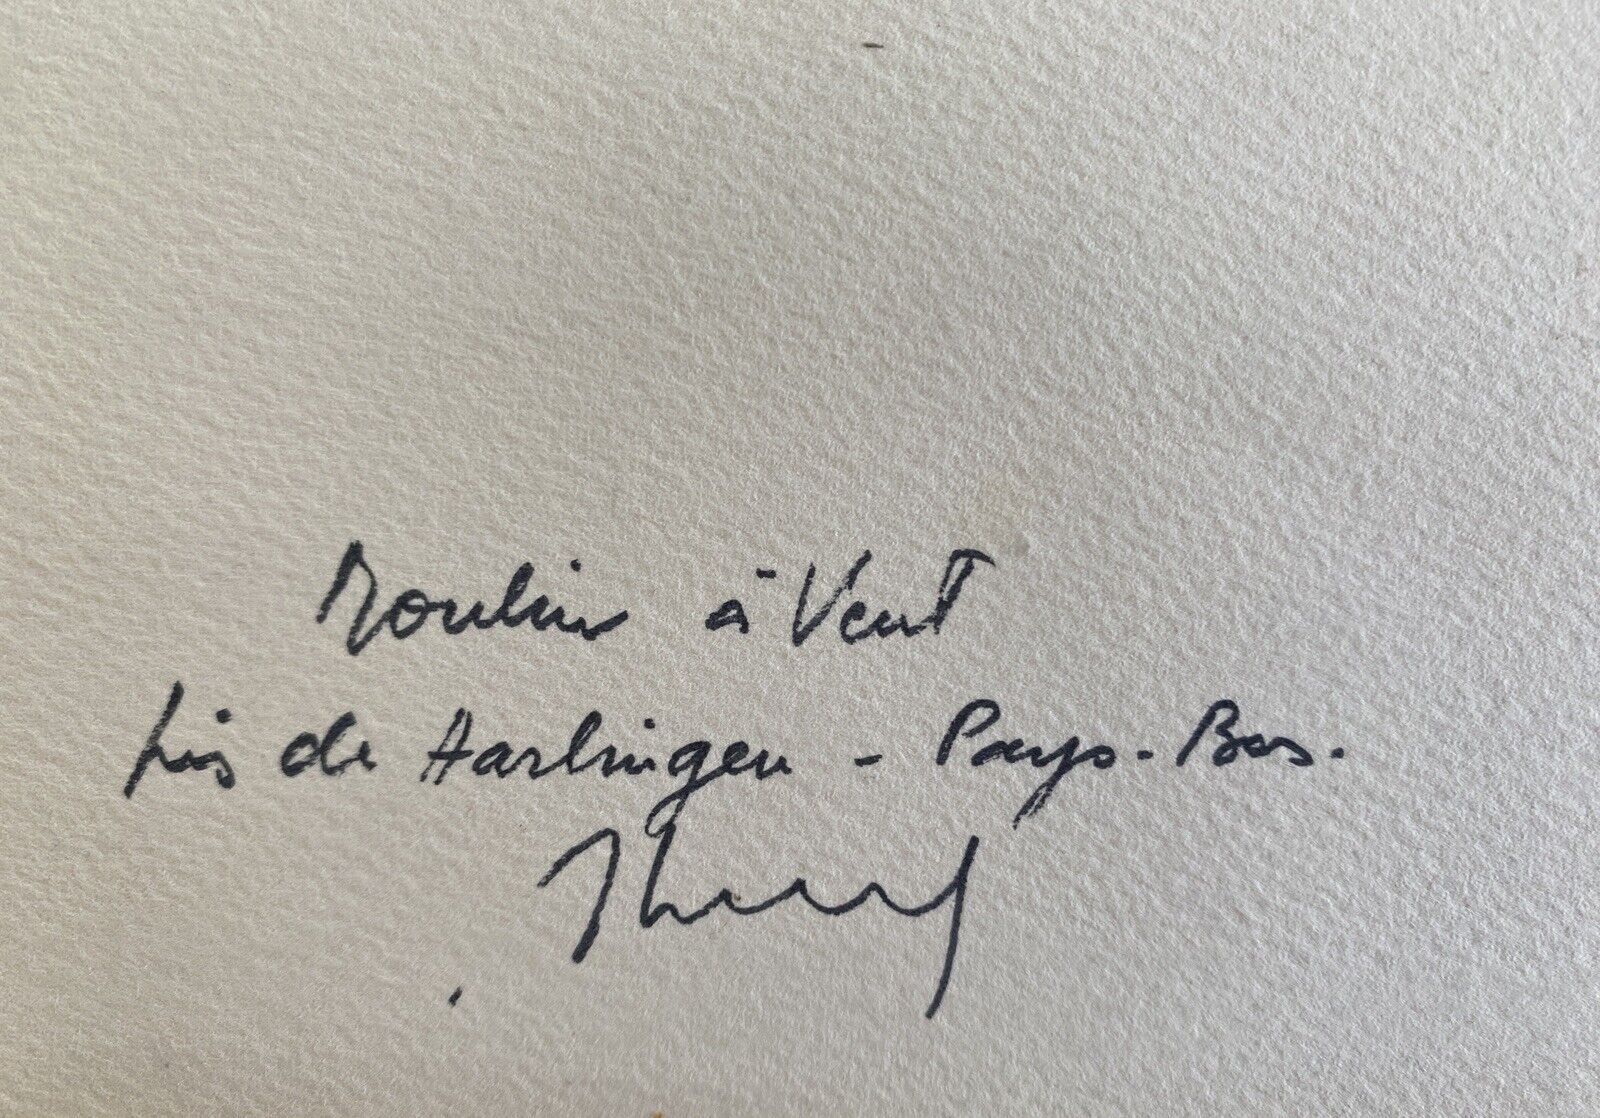 Moulin à Vent
près de Harlingen - Pays-Bas.